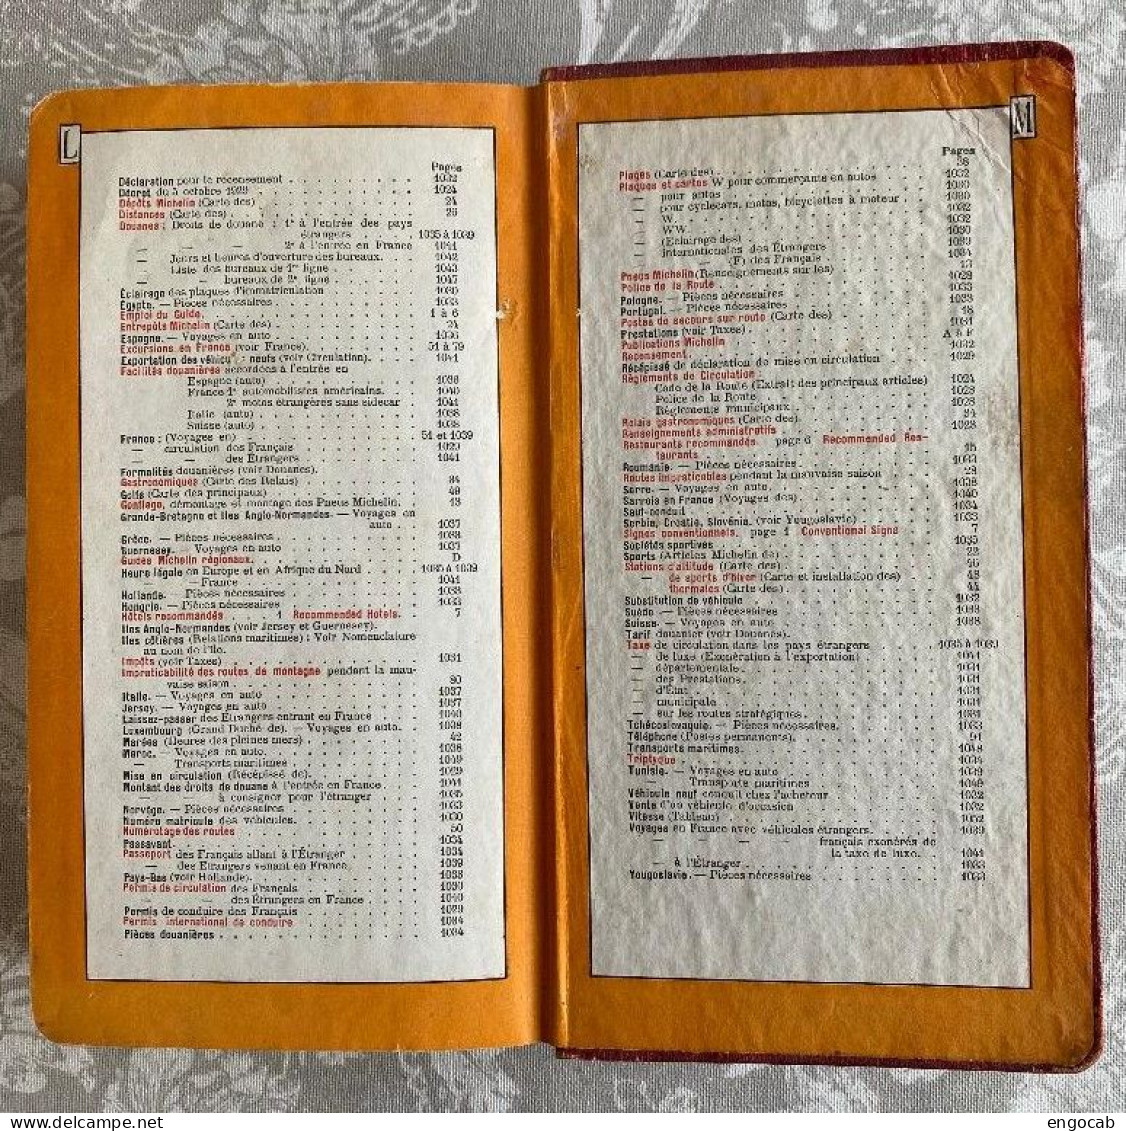 L
Pages
Déclaration pour le recensement 1032
Décret du 5 octobre 1929 1024
Dépôts Michelin (Carte des) 24
Distances (Carte des) 26
Douanes : Droits de douane : 1° à l'entrée des pays
étrangers 1035 à 1039
— — — 2° à l'entrée en France 1041
— Jours et heures d'ouverture des bureaux. 1042
— Liste des bureaux de 1re ligne 1043
— — bureaux de 2e ligne 1047
Éclairage des plaques d'immatriculation 1030
Égypte. — Pièces nécessaires 1033
Emploi du Guide. 1 à 6
Entrepôts Michelin (Carte des) 24
Espagne. — Voyages en auto 1036
Excursions en France (voir France). 51 à 79
Exportation des véhicules neufs (voir Circulation). 1041
Facilités douanières accordées à l'entrée en
Espagne (auto) 1036
France 1° automobilistes américains. 1040
2° motos étrangères sans sidecar 1041
Italie (auto) 1038
Suisse (auto) 1038
France : (Voyages en) 51 et 1039
— circulation des Français 1029
— — des Étrangers 1041
Formalités douanières (voir Douanes).
Gastronomiques (Carte des Relais) 34
Golfs (Carte des principaux) 49
Gonflage, démontage et montage des Pneus Michelin. 13
Grande-Bretagne et Iles Anglo-Normandes. — Voyages en
auto 1037
Grèce. — Pièces nécessaires 1033
Guernesey. — Voyages en auto 1037
Guides Michelin régionaux. D
Heure légale en Europe et en Afrique du Nord 1035 à 1039
— — France 1041
Hollande. — Pièces nécessaires 1033
Hongrie. — Pièces nécessaires 1033
Hôtels recommandés 1 Recommended Hotels. 7
Iles Anglo-Normandes (voir Jersey et Guernesey).
Iles côtières (Relations maritimes) : Voir Nomenclature
au nom de l'île.
Impôts (voir Taxes) 1031
Impraticabilité des routes de montagne pendant la mau-
vaise saison 80
Italie. — Voyages en auto 1037
Jersey. — Voyages en auto 1037
Laissez-passer des Étrangers entrant en France 1040
Luxembourg (Grand Duché de). — Voyages en auto. 1038
Marées (Heures des pleines mers) 42
Maroc. — Voyages en auto. 1038
— Transports maritimes 1049
Mise en circulation (Récépissé de). 1029
Montant des droits de douane à l'entrée en France 1041
— à consigner pour l'étranger 1035
Norvège. — Pièces nécessaires 1033
Numéro matricule des véhicules. 1030
Numérotage des routes 50
Passavant. 1034
Passeport des Français allant à l'Étranger 1034
— des Étrangers venant en France. 1039
Pays-Bas (voir Hollande). 1033
Permis de circulation des Français 1030
— — des Étrangers en France 1040
Permis de conduire des Français 1029
Permis international de conduire 1034
Pièces douanières 1034
M
Pages
Plages (Carte des) 38
Plaques et cartes W pour commerçants en autos 1032
— pour autos 1030
— pour cyclecars, motos, bicyclettes à moteur 1030
— W. 1032
— WW. 1032
— (Éclairage des) 1030
— internationales des Étrangers 1039
— — (F) des Français 1034
Pneus Michelin (Renseignements sur les) 13
Police de la Route 1028
Pologne. — Pièces nécessaires 1033
Portugal. — Pièces nécessaires 1033
Postes de secours sur route (Carte des) 18
Prestations (voir Taxes) 1031
Publications Michelin A à F
Recensement. 1032
Récépissé de déclaration de mise en circulation 1029
Règlements de Circulation :
Code de la Route (Extrait des principaux articles) 1024
Police de la Route. 1028
Règlements municipaux 1028
Relais gastronomiques (Carte des). 34
Renseignements administratifs 1028
Restaurants recommandés. page 6 Recommended Res-
taurants. 15
Roumanie. — Pièces nécessaires 1033
Routes impraticables pendant la mauvaise saison 28
Sarre. — Voyages en auto. 1038
Sarrois en France (Voyages des) 1040
Sauf-conduit 1034
Serbie, Croatie, Slovénie. (voir Yougoslavie) 1033
Signes conventionnels. page 1 Conventional Signs 7
Sociétés sportives 1035
Sports (Articles Michelin de) 22
Stations d'altitude (Carte des) 46
— de sports d'hiver (Carte et installation des) 48
— thermales (Carte des) 44
Substitution de véhicule 1032
Suède — Pièces nécessaires 1033
Suisse. — Voyages en auto 1038
Tarif douanier (voir Douanes).
Taxe de circulation dans les pays étrangers 1035 à 1039
— de luxe (Exonération à l'exportation) 1041
— départementale. 1031
— des Prestations. 1031
— d'État 1031
— municipale 1031
— sur les routes stratégiques. 1031
Tchécoslovaquie. — Pièces nécessaires. 1033
Téléphone (Postes permanents). 91
Transports maritimes. 1048
Triptyque 1034
Tunisie. — Voyages en auto 1039
— Transports maritimes 1049
Véhicule neuf conduit chez l'acheteur 1032
Vente d'un véhicule d'occasion 1032
Vitesse (Tableau) 1052
Voyages en France avec véhicules étrangers. 1039
— — — — français exonérés de
la taxe de luxe. 1041
— à l'Étranger 1033
Yougoslavie. — Pièces nécessaires 1033
engocab